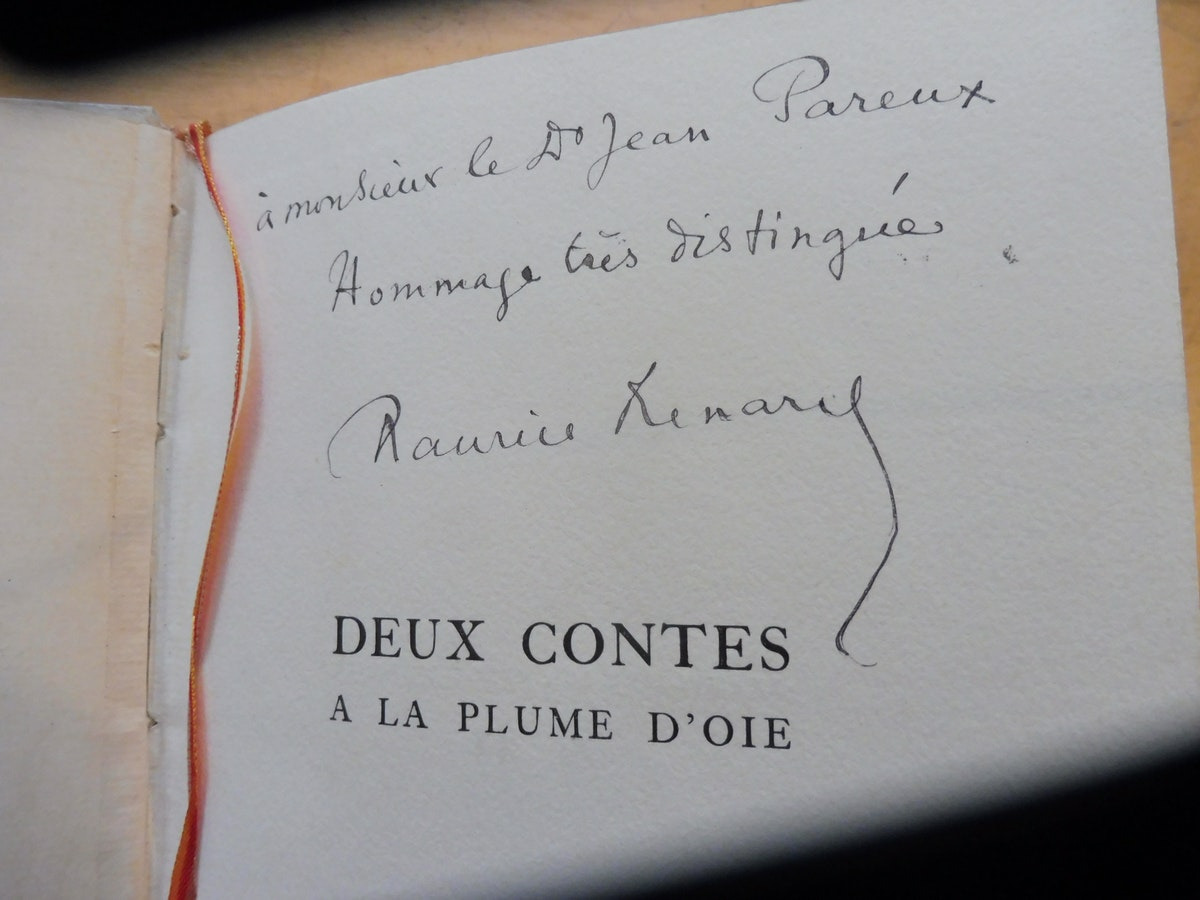 à monsieur le Dr Jean Pareux
Hommage très distingué
Maurice Renard
DEUX CONTES
A LA PLUME D'OIE